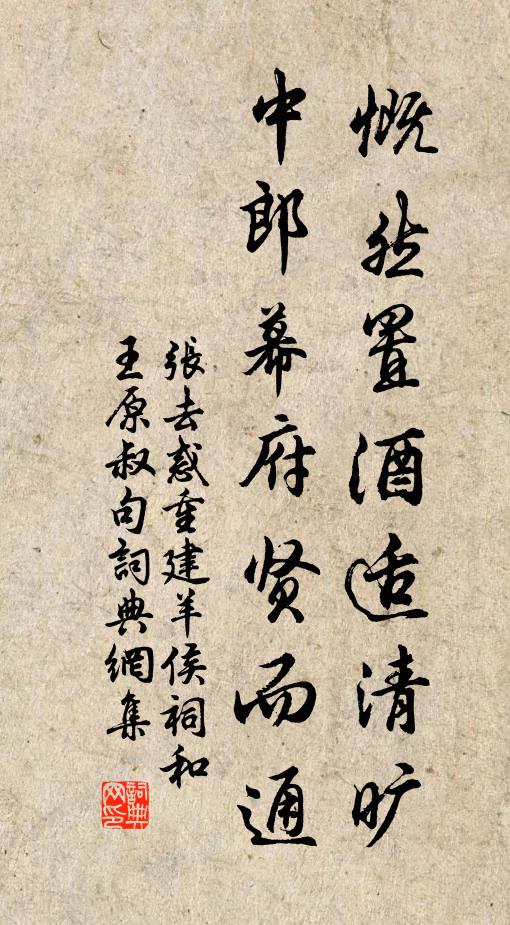 慨然置酒适清旷
中郎幕府贤而通
張去惑重建羊侯祠和
王原叔句詞典網集
詞典
网印